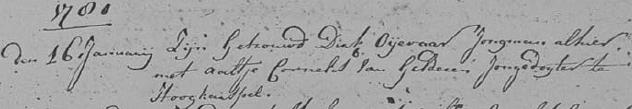 1781
den 16 January Zijn Getrouwd Dirk Oijevaar Jongman alhier
met aaltje Cornelis Van Gelderen Jongedogter te
Hooghcarspel.